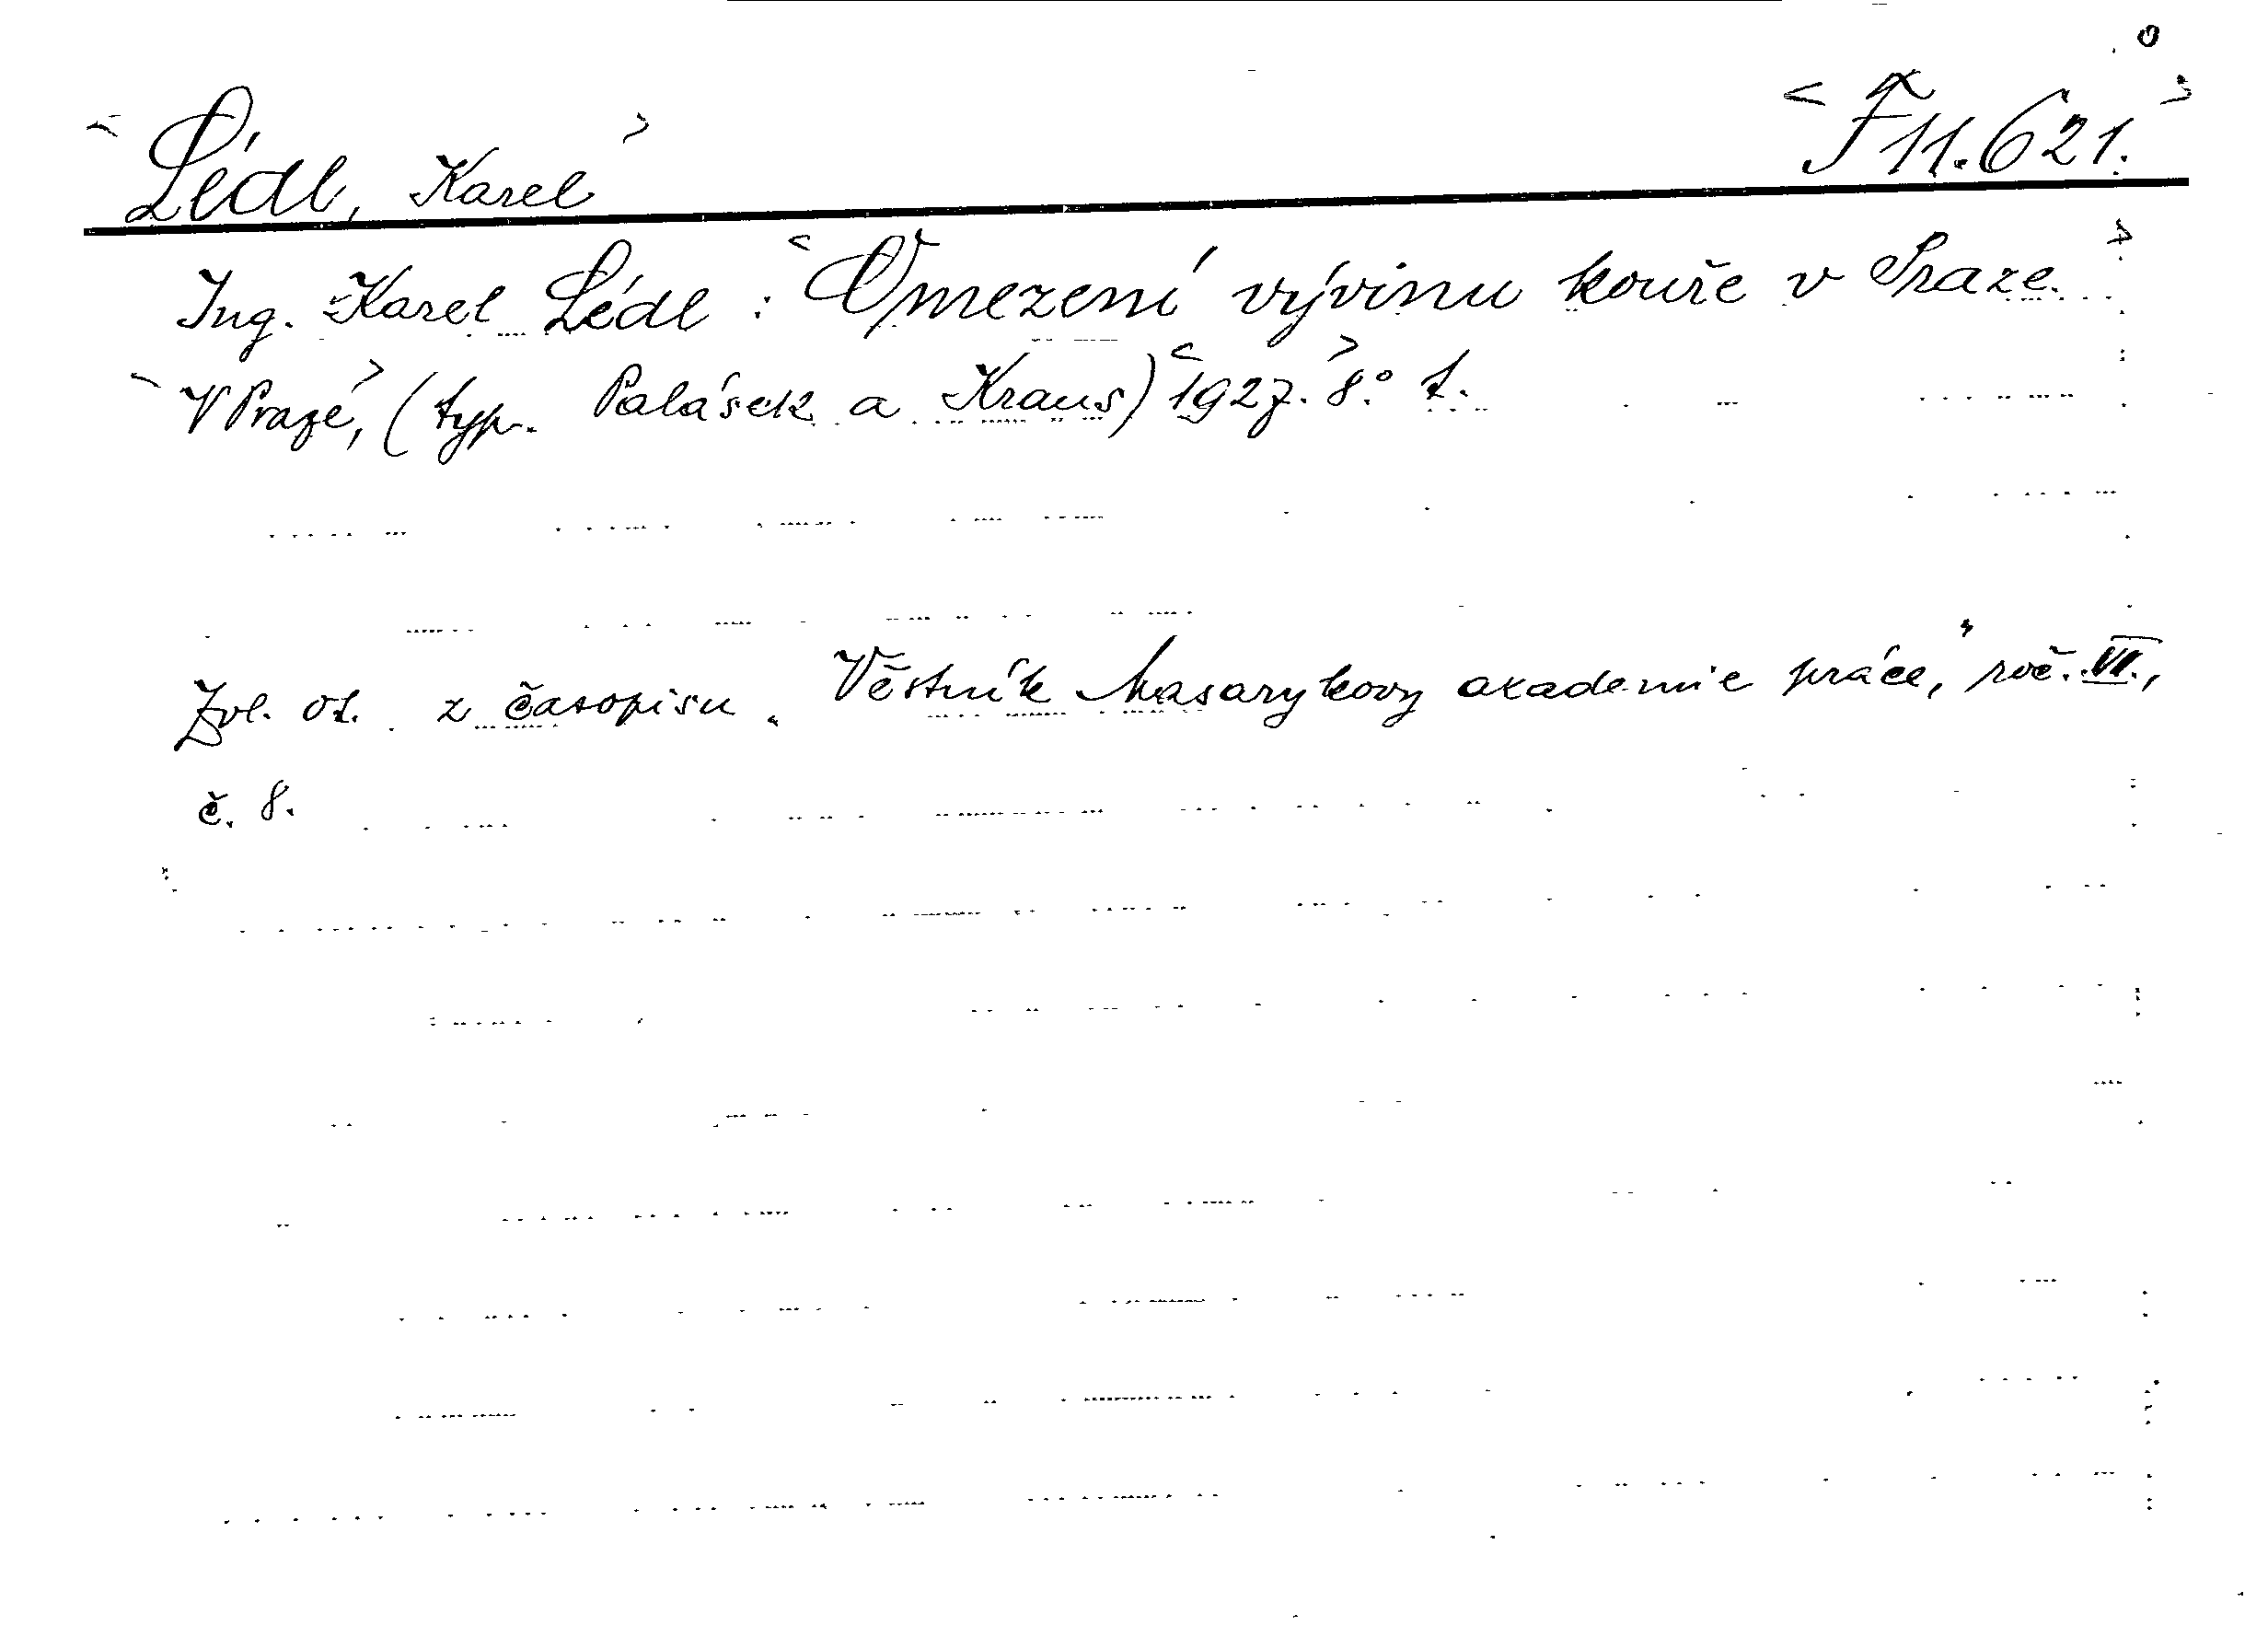 <Lédl, Karel> <F 11.621.>
Ing. Karel Lédl: <Omezení vývinu kouře v Praze.>
<V Praze,> (typ. Palásek a Kraus) <1927.> 8.° 1.
Zvl. ot. z časopisu „Věstník Masarykovy akademie práce," roč. VII.,
č. 8.